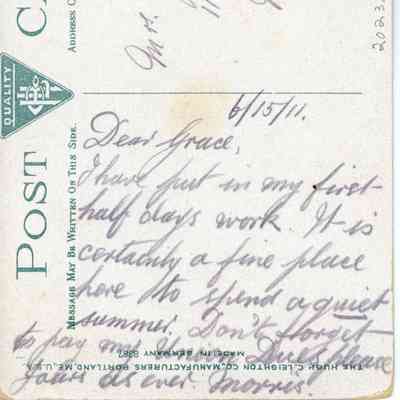 6/15/11.
Dear Grace,
I have put in my first
half days work. It is
certainly a fine place
here to spend a quiet
summer. Don't forget
to pay my Union Dues please
Yours as ever. Morris.
POST CA
MESSAGE MAY BE WRITTEN ON THIS SIDE.
ADDRESS O
QUALITY
Mrs.
2023.
THE HUGH C. LEIGHTON CO., MANUFACTURERS PORTLAND, ME., U.S.A.
MADE IN GERMANY 8387